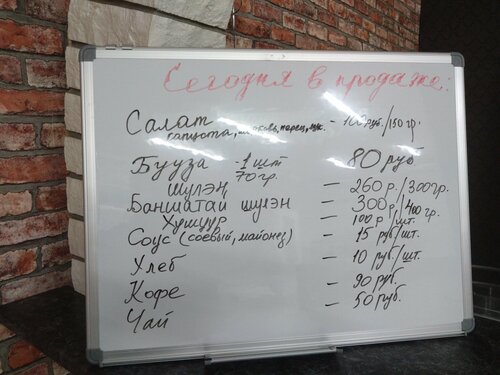 Сегодня в продаже:
Салат - 100 руб./150 гр.
капуста, морковь, перец, лук.
Бууза - 1 шт 80 руб
70 гр.
Шулэн - 260 р./300 гр.
Баншатай шулэн - 300 р./400 гр.
Хушуур - 100 р./шт.
Соус (соевый, майонез) - 15 руб/шт.
Хлеб - 10 руб/шт.
Кофе - 90 руб.
Чай - 50 руб.